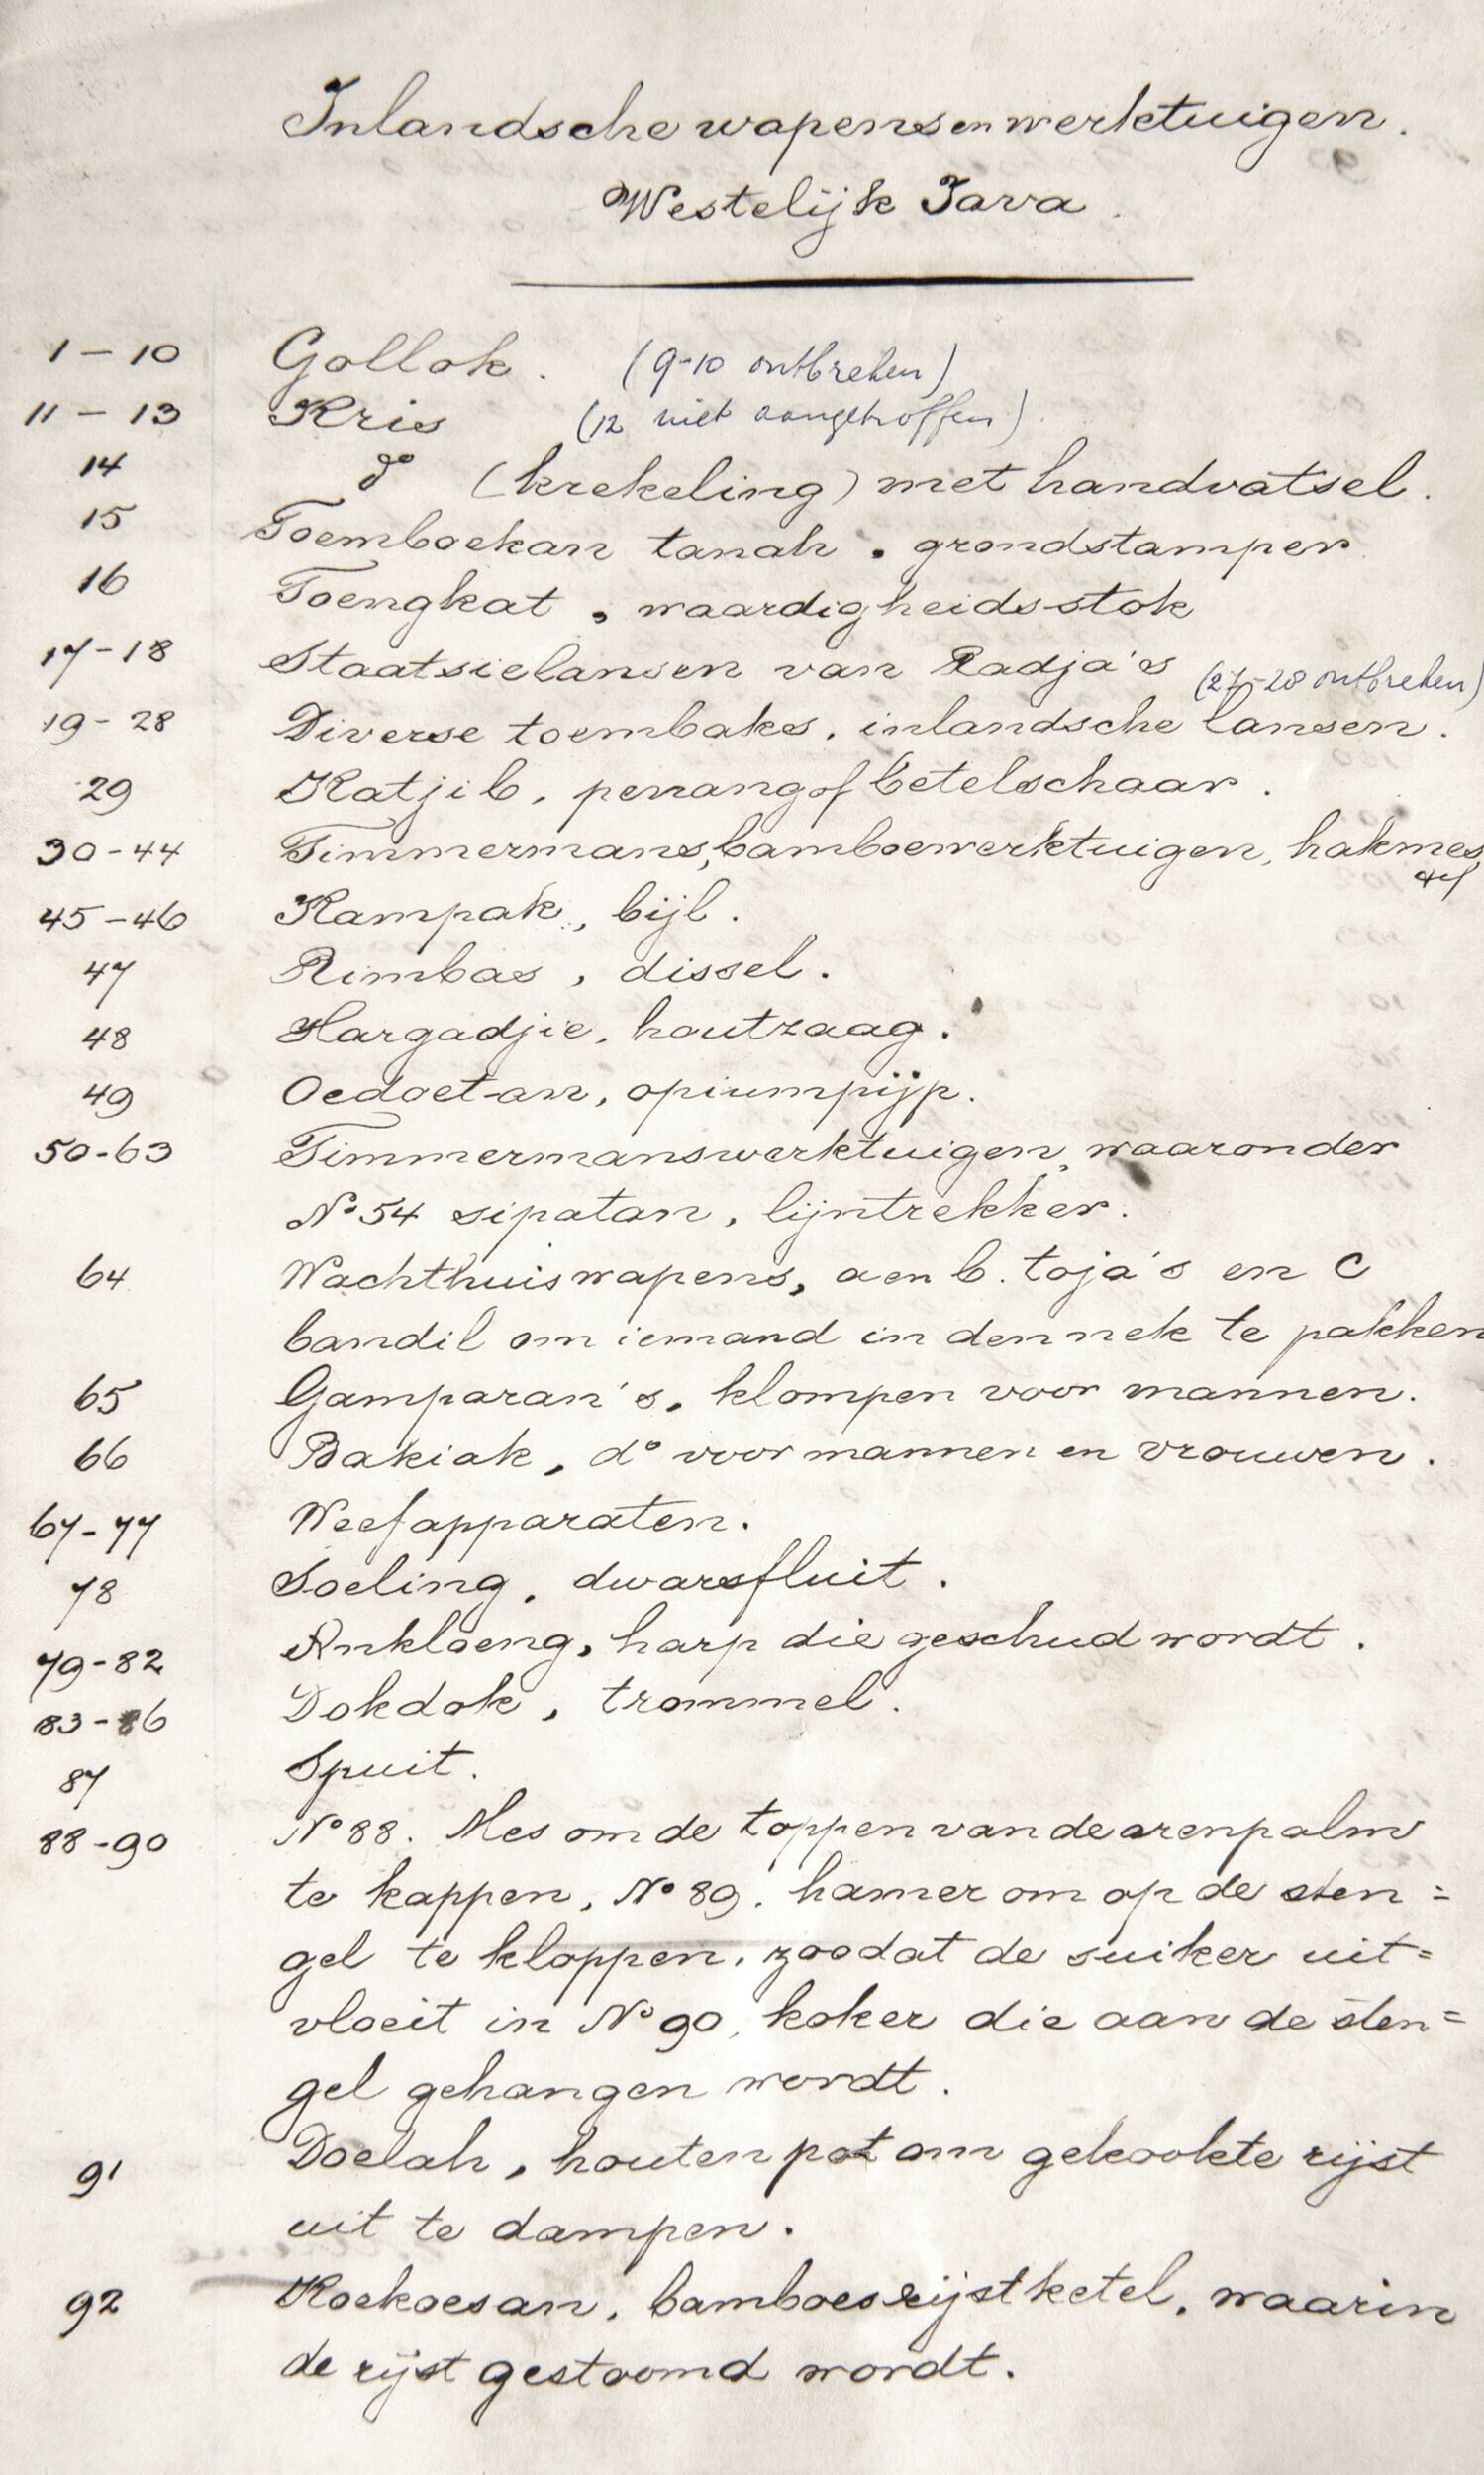 Inlandsche wapens en werktuigen.
Westelijk Java.
1 – 10 Gollok. (9-10 ontbreken)
11 – 13 Kris (12 niet aangetroffen)
14 do (krekeling) met handvatsel.
15 Toemboekan tanah. grondstamper.
16 Toengkat, waardigheidsstok
17-18 Staatsielansen van Radja's (27-28 ontbreken)
19-28 Diverse toembaks, inlandsche lansen.
29 Katjib, perrang of betelschaar.
30-44 Timmermans, bamboewerktuigen, hakmes
45-46 Kampak, bijl.
47 Rimbas, dissel.
48 Hargadjie, houtzaag.
49 Oedoet-an, opiumpijp.
50-63 Timmermanswerktuigen, waaronder
No 54 sipatan, lijntrekker.
64 Wachthuiswapens, a en b. toja's en c
bandil om iemand in den nek te pakken
65 Gamparan's, klompen voor mannen.
66 Bakiak, do voor mannen en vrouwen.
67-77 Weefapparaten.
78 Soeling, dwarsfluit.
79-82 Ankloeng, harp die geschud wordt.
83-86 Dokdok, trommel.
87 Spuit.
88-90 No 88. Mes om de toppen van de arenpalm
te kappen, No 89. hamer om op de sten=
gel te kloppen, zoodat de suiker uit=
vloeit in No 90, koker die aan de sten=
gel gehangen wordt.
91 Doelah, houten pot om gekookte rijst
uit te dampen.
92 Koekoesan, bamboes rijstketel, waarin
de rijst gestoomd wordt.